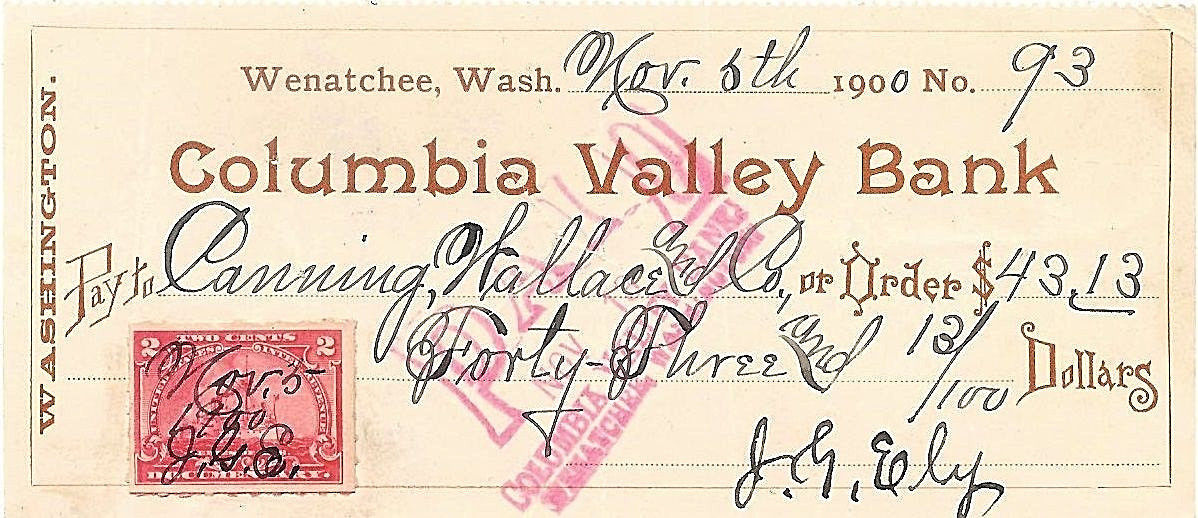 Wenatchee, Wash. Nov. 5th 1900 No. 93
WASHINGTON.
Columbia Valley Bank
Pay to Canning, Wallace and Co., or Order $43.13
Forty-Three and 13/100 Dollars
J. G. Ely
2 TWO CENTS 2
Nov. 5
1900
J.G.E.
DOCUMENTARY.
PAID
NOV
COLUMBIA
WENATCHEE